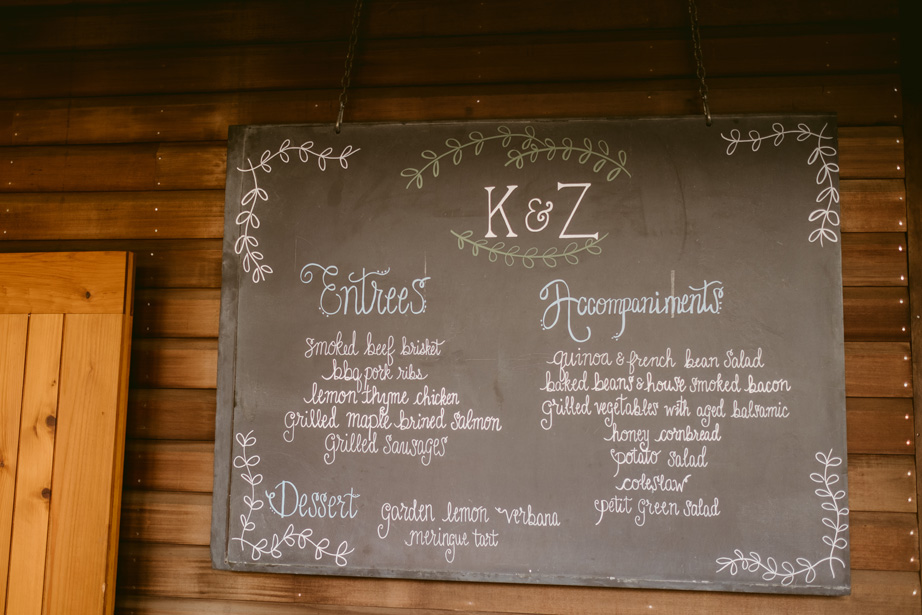 K & Z
Entrees
smoked beef brisket
bbq pork ribs
lemon thyme chicken
grilled maple brined salmon
grilled sausages
Accompaniments
quinoa & french bean salad
baked beans & house smoked bacon
grilled vegetables with aged balsamic
honey cornbread
potato salad
coleslaw
petit green salad
Dessert
garden lemon verbana
meringue tart